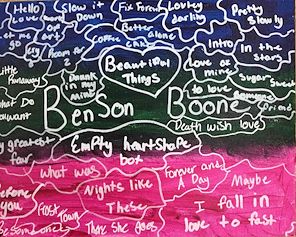 Hello
Love
Slow it
Down
Pretty
Slowly
Better
alone
Coffee
cake
Room for
2
Intro
In the
stars
Beautiful
Things
Little
Runaway
Drunk
in my
mind
Love of
mine
Sugar Sweet
to love
someone
Friend
What Do
want
BenSon
Boone
Death wish love
greatest
fear
Empty heartshape
box
what was
Forever and
A Day
Maybe
Before
you
Nights like
These
I fall in
love to fast
Town
There She goes
Be Someone